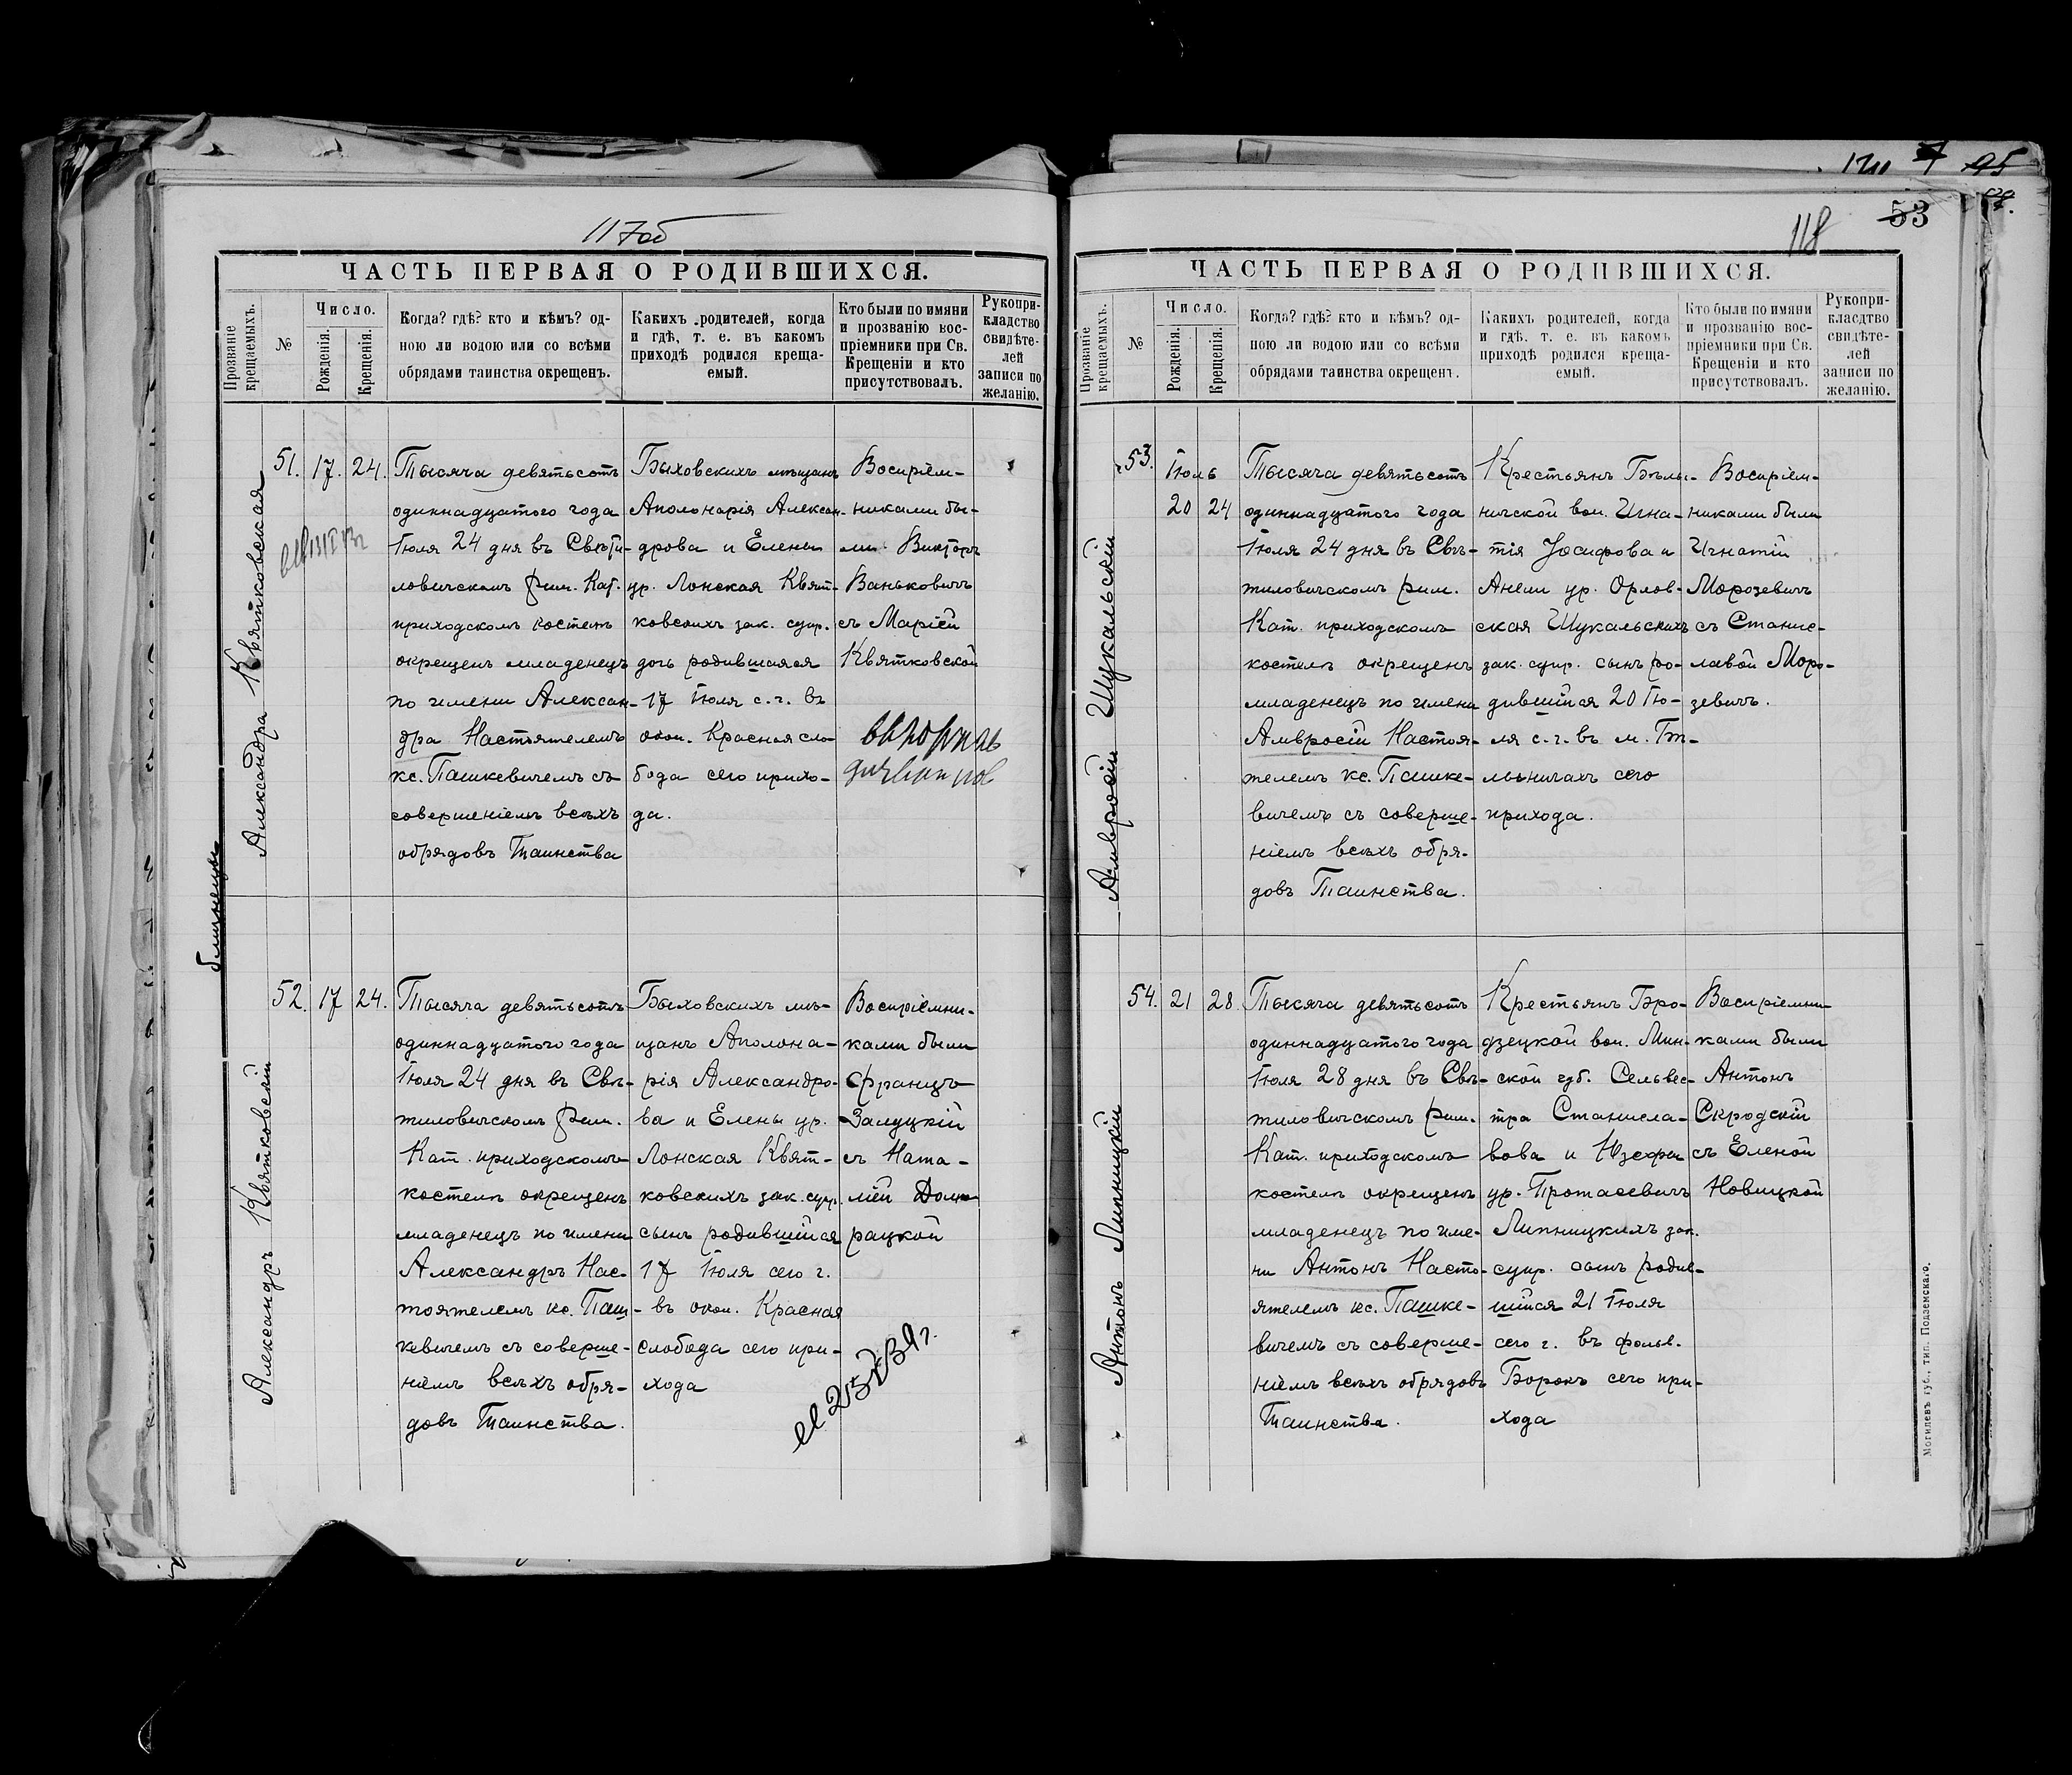 117об
ЧАСТЬ ПЕРВАЯ О РОДИВШИХСЯ.
Прозваніе крещаемыхъ.
№
Число.
Рожденія.
Крещенія.
Когда? гдѣ? кто и кѣмъ? од-
ною ли водою или со всѣми
обрядами таинства окрещенъ.
Какихъ родителей, когда
и гдѣ, т. е. въ какомъ
приходѣ родился креща-
емый.
Кто были по имяни
и прозванію вос-
пріемники при Св.
Крещеніи и кто
присутствовалъ.
Рукопри-
кладство
свидѣте-
лей
записи по
желанію.
близнецы
Александра Квятковская
51. 17. 24.
Тысяча девятьсотъ
одиннадцатого года
Іюля 24 дня въ Свѣти-
ловичскомъ Рим. Кат.
приходскомъ костелѣ
окрещенъ младенецъ
по имени Алексан-
дра Настоятелемъ
кс. Пашкевичемъ съ
совершеніемъ всѣхъ
обрядовъ Таинства
Быховскихъ мѣщанъ
Аполонарія Алексан-
дрова и Елены
ур. Лонская Квят-
ковскихъ зак. супр.
дочь родившаяся
17 Іюля с. г. въ
окол. Красная сло-
бода сего прихо-
да.
Воспріем-
никами бы-
ли Викторъ
Ваньковичъ
съ Маріей
Квятковской
Александръ Квятковскій
52. 17 24.
Тысяча девятьсотъ
одиннадцатого года
Іюля 24 дня въ Свѣ-
тиловичскомъ Рим.
Кат. приходскомъ
костелѣ окрещенъ
младенецъ по имени
Александръ Нас-
тоятелемъ кс. Паш-
кевичемъ съ соверше-
ніемъ всѣхъ обря-
довъ Таинства.
Быховскихъ мѣ-
щанъ Аполона-
рія Александро-
ва и Елены ур.
Лонская Квят-
ковскихъ зак. супр.
сынъ родившійся
17 Іюля сего г.
въ окол. Красная
слобода сего при-
хода
Воспріемни-
ками были
Францъ
Залуцкій
съ Ната-
ліей
рацкой
118
53
ЧАСТЬ ПЕРВАЯ О РОДИВШИХСЯ.
Прозваніе крещаемыхъ.
№
Число.
Рожденія.
Крещенія.
Когда? гдѣ? кто и кѣмъ? од-
ною ли водою или со всѣми
обрядами таинства окрещенъ.
Какихъ родителей, когда
и гдѣ. т. е. въ какомъ
приходѣ родился креща-
емый.
Кто были по имяни
и прозванію вос-
пріемники при Св.
Крещеніи и кто
присутствовалъ.
Рукопри-
класдтво
свидѣте-
лей
записи по
желанію.
Амвросій Шукальскій
53. Іюль
20 24
Тысяча девятьсотъ
одиннадцатого года
Іюля 24 дня въ Свѣ-
тиловичскомъ рим.
Кат. приходскомъ
костелѣ окрещенъ
младенецъ по имени
Амвросій Настоя-
телемъ кс. Пашке-
вичемъ съ соверше-
ніемъ всѣхъ обря-
довъ Таинства.
Крестьянъ Бѣлы-
ничской вол. Игна-
тія Іосифова и
Анели ур. Орлов-
ская Шукальскихъ
зак. супр. сынъ ро-
дившійся 20 Ію-
ля с. г. въ м. Бѣ-
лыничахъ сего
прихода.
Воспріем-
никами были
Игнатій
Морозевичъ
съ Станис-
лавой Моро-
зевичъ.
Антонъ Липницкій
54. 21 28.
Тысяча девятьсотъ
одиннадцатого года
Іюля 28 дня въ Свѣ-
тиловичскомъ рим.
Кат. приходскомъ
костелѣ окрещенъ
младенецъ по име-
ни Антонъ Насто-
ятелемъ кс. Пашке-
вичемъ съ соверше-
ніемъ всѣхъ обрядовъ
Таинства.
Крестьянъ Бро-
дзецкой вол. Мин-
ской губ. Сельвес-
тра Станисла-
вова и Юзефы
ур. Протасевичъ
Липницкихъ зак.
супр. сынъ родив-
шійся 21 Іюля
сего г. въ фольв.
Борокъ сего при-
хода
Воспріемни-
ками были
Антонъ
Скродскій
съ Еленой
Новицкой
Могилевъ губ., тип. Подземскаго.